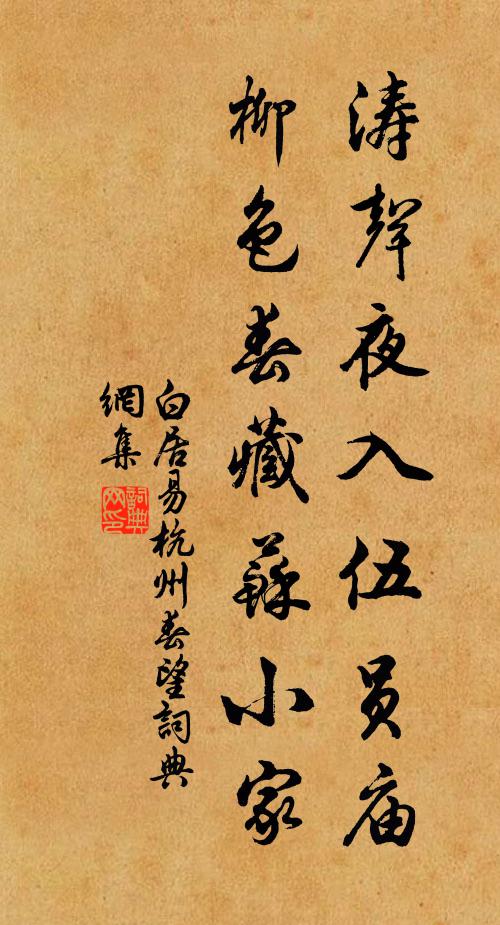 涛聲夜入伍員庙
柳色春藏蘇小家
白居易杭州春望詞典
網集
詞典
网印